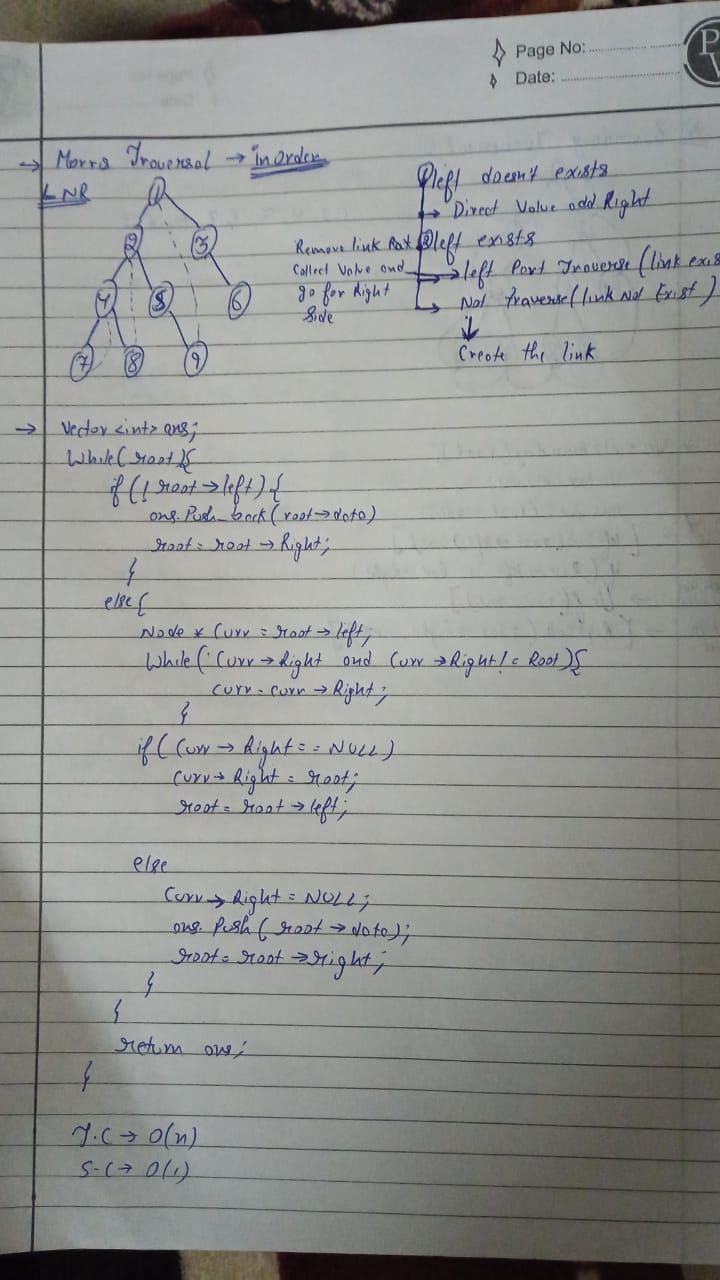 Page No:
Date:
P
W
→ Morris Traversal → inorder
LNR
1
2 3
4 5 6
7 8 9
① left doesn't exists
→ Direct Value add Right
② left exists
→ left Part Traverse (link exis
→ Not traverse (link Not Exist)
↓
Create the link
Remove link
Collect Value and
go for Right
Side
→ Vector <int> ans;
While(root){
if(!root→left){
ans.Push_back(root→data)
root = root → Right;
}
else{
Node * Curr = root→left;
While(Curr→Right and Curr→Right != Root){
curr = curr → Right;
}
if(Curr→Right == NULL)
Curr→Right = root;
root = root → left;
else
Curr→Right = NULL;
ans.Push(root→data);
root = root →right;
}
}
return ans;
}
T.C → O(n)
S.C → O(1)